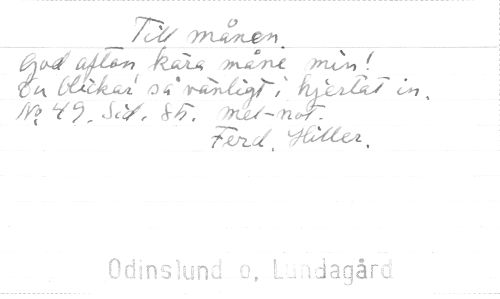 Till månen.
God afton kära måne min!
Du blickar så vänligt i hjertat in.
No 49. Sid. 85. mel-not.
Ferd. Hiller.
Odinslund o, Lundagård